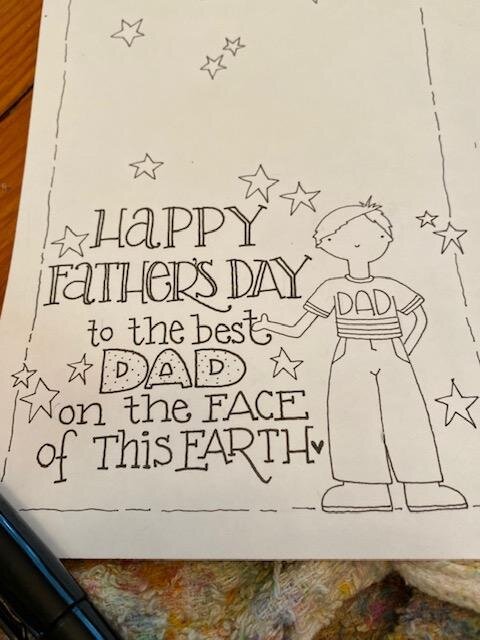 HAPPY
FATHER'S DAY
to the best
DAD
on the FACE
of This EARTH
DAD